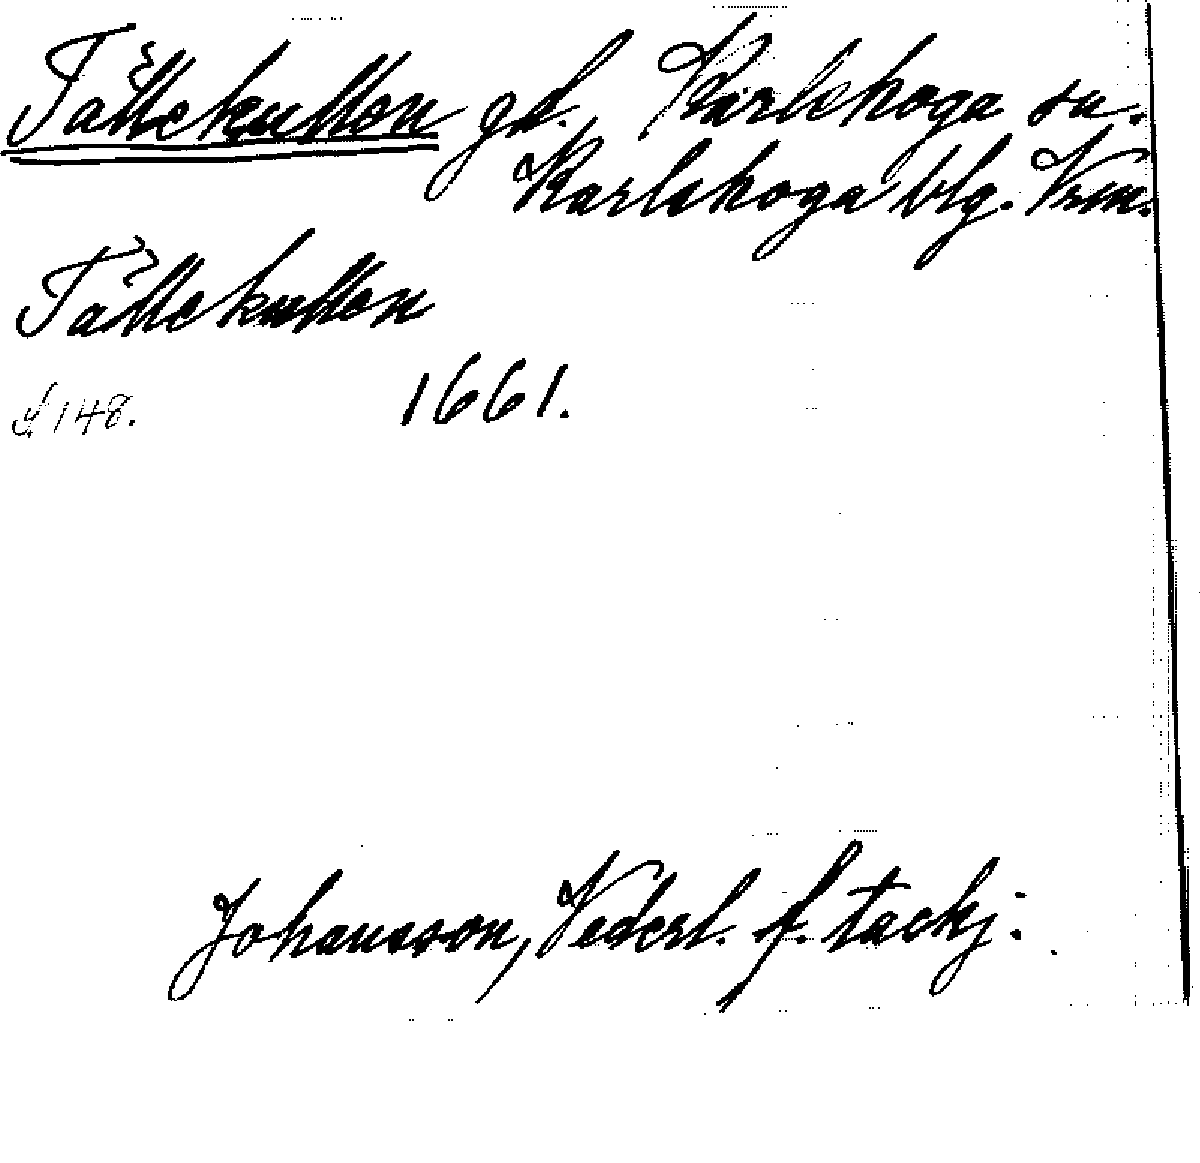 Tällekullen gd. Karlskoga sn.
Karlskoga blg. Vrm.
Tällekullen
1661.
Johansson, Vederl. f. tackj: